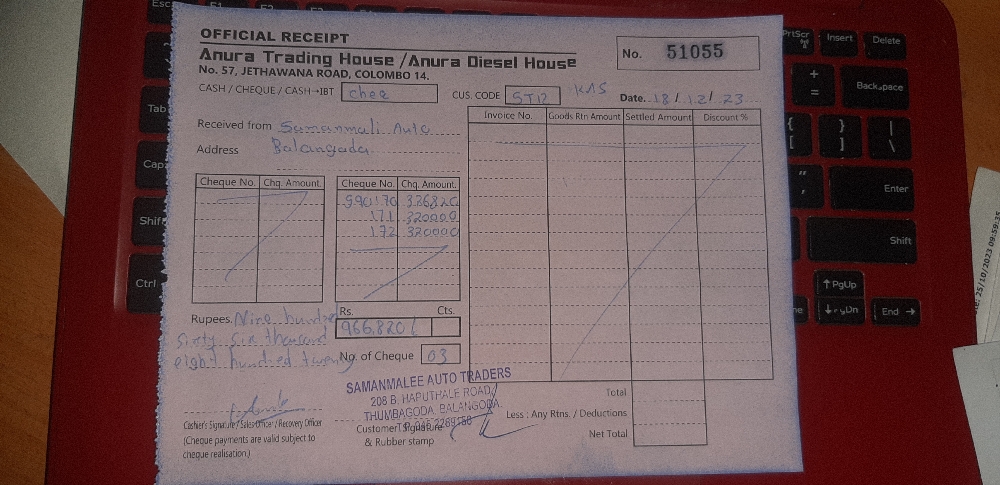 OFFICIAL RECEIPT
Anura Trading House /Anura Diesel House
No. 57, JETHAWANA ROAD, COLOMBO 14.
No. 51055
CASH / CHEQUE / CASH→IBT cheq
CUS. CODE ST12 KAS
Date 18/12/23
Received from Samanmali Auto
Address Balangoda
Invoice No. Goods Rtn Amount Settled Amount Discount %
Cheque No. Chq. Amount. Cheque No. Chq. Amount.
990170 326820
171 320000
172 320000
Rupees. Nine hundred
sixty six thousand
eight hundred twenty
Rs. Cts.
966,820/
No. of Cheque 03
SAMANMALEE AUTO TRADERS
208 B, HAPUTHALE ROAD,
THUMBAGODA, BALANGODA.
Cashier's Signature / Sales Officer / Recovery Officer
(Cheque payments are valid subject to
cheque realisation.)
Customer Signature
& Rubber stamp
Total
Less : Any Rtns. / Deductions
Net Total
Esc
Tab
Cap
Shif
Ctrl
PrtScr
Insert
Delete
Backspace
Enter
Shift
PgUp
PgDn
End
25/10/2023 09:59:35